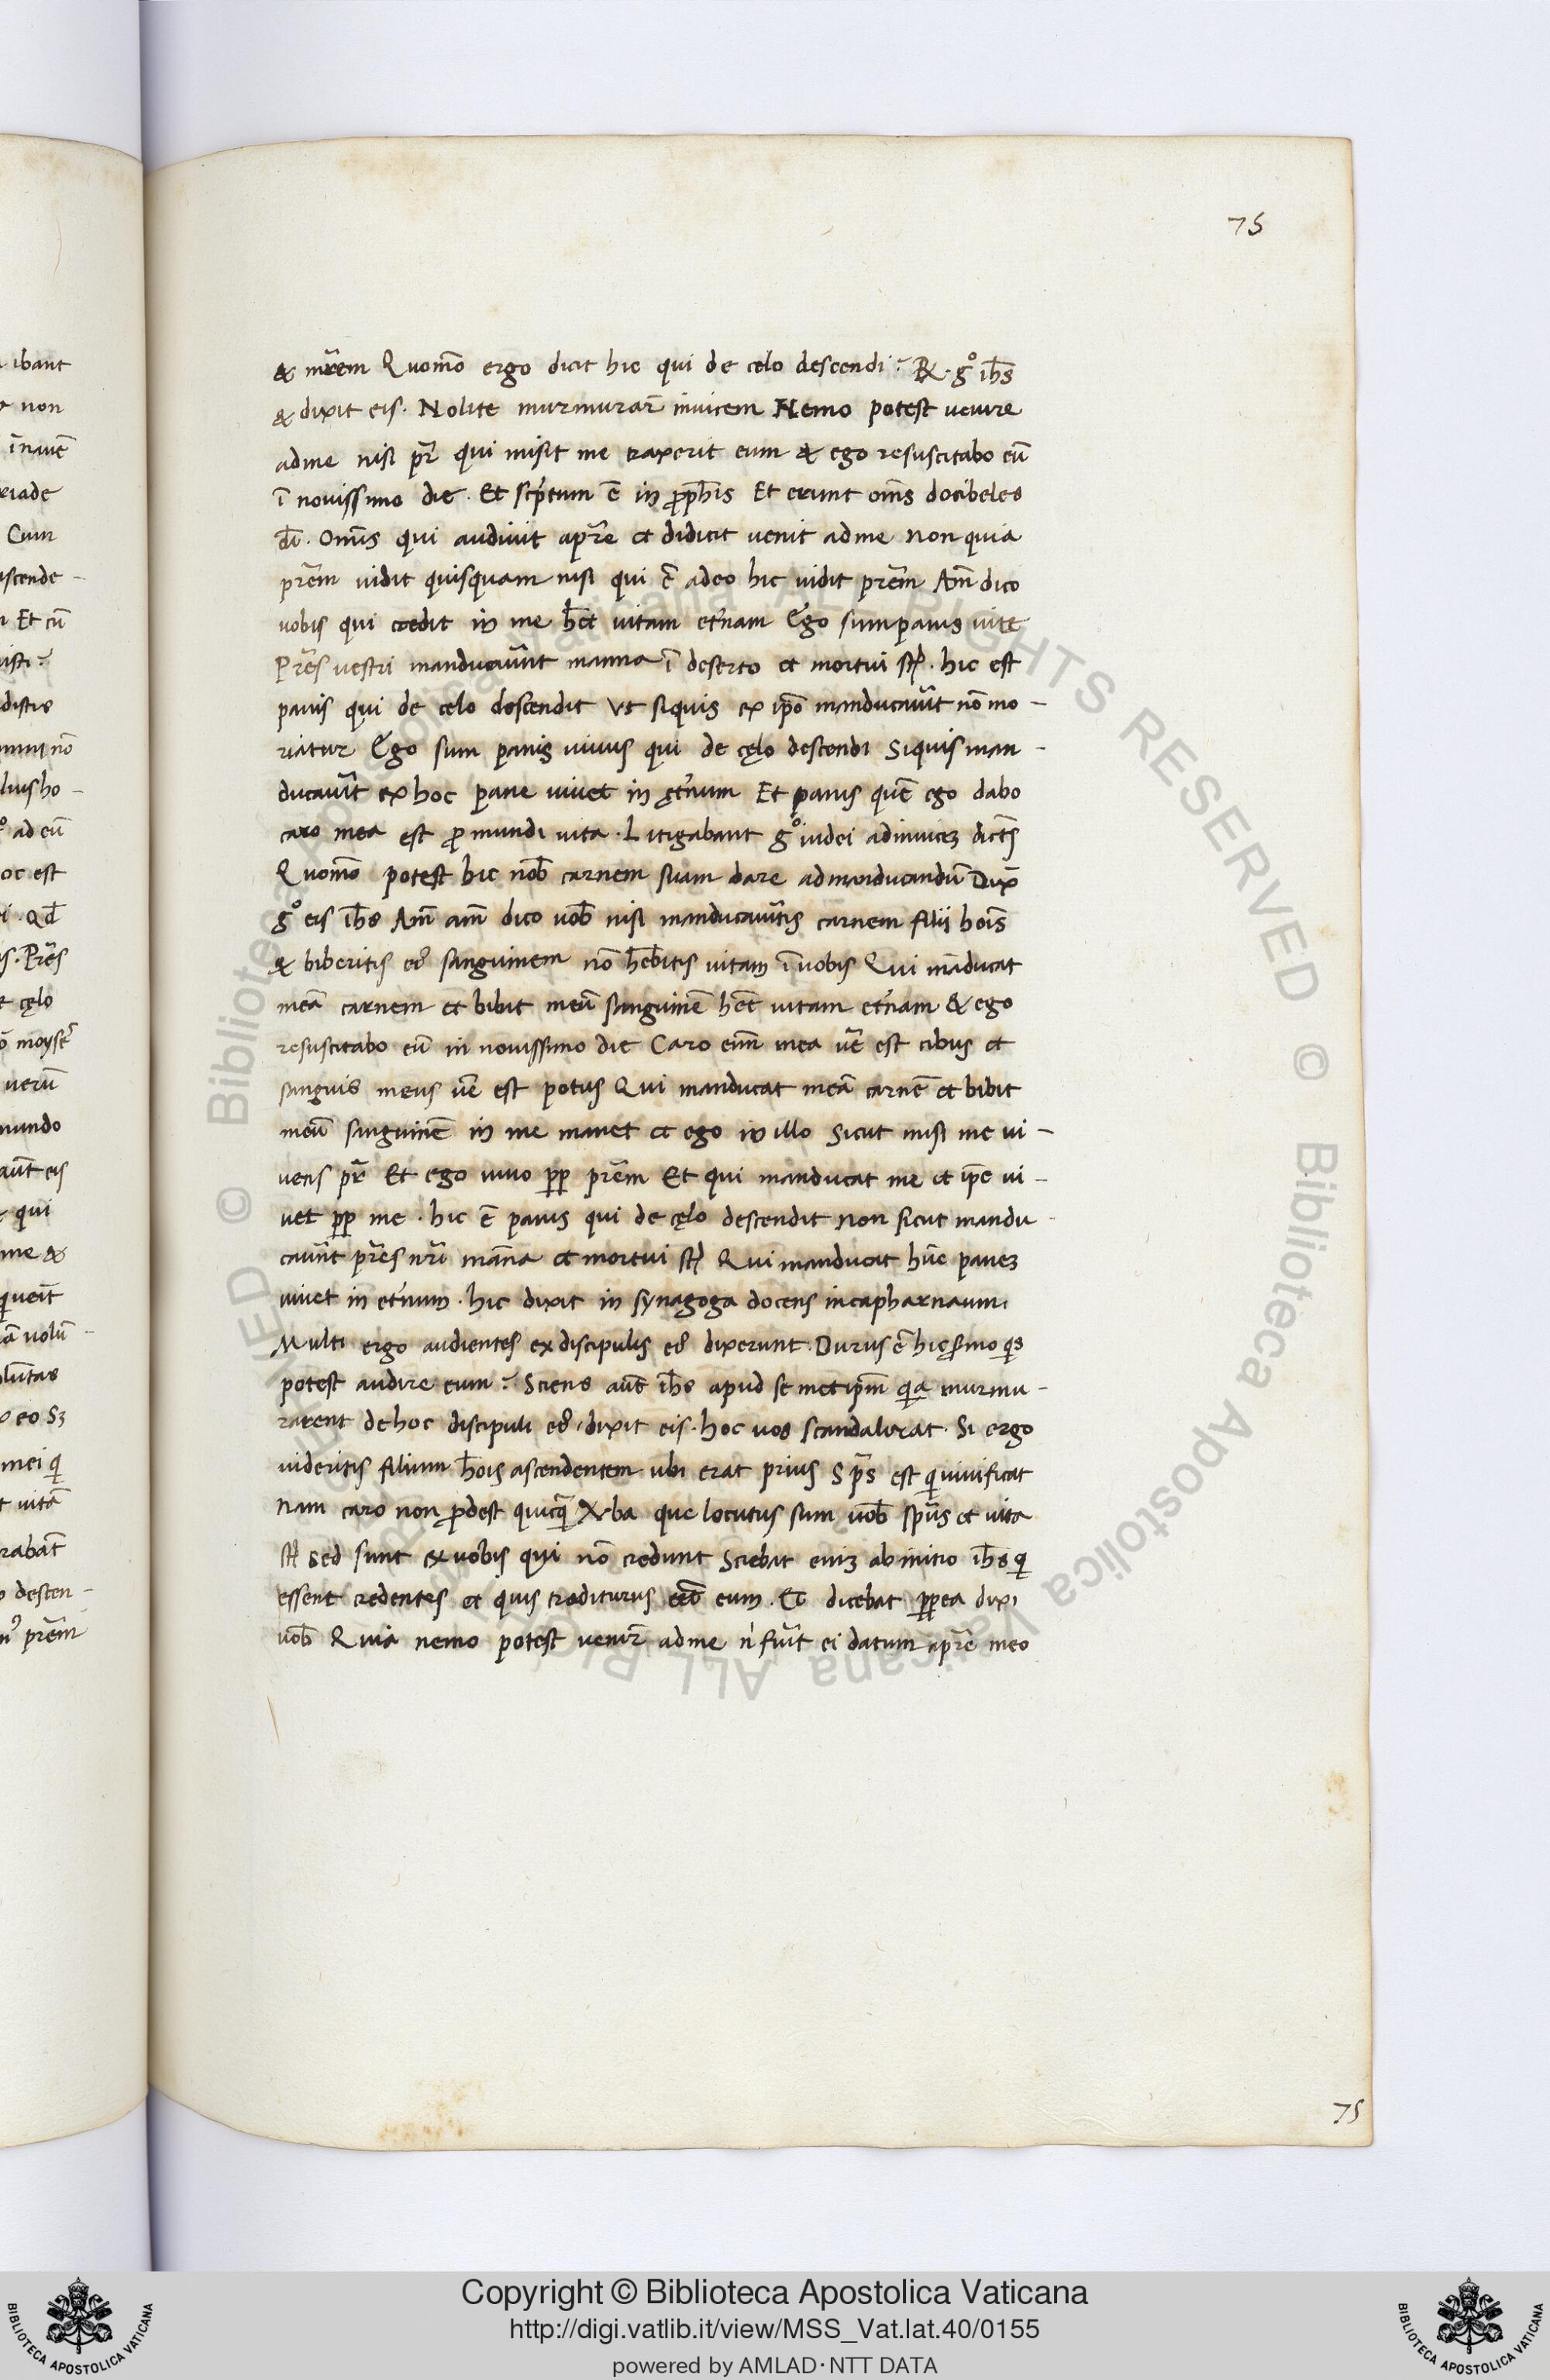 75
& mr̃em Quom̃o ergo dicit hic qui de celo descendi? R̃x. g° ih̃s
& dixit eis. Nolite murmurar̃ invicem Nemo potest venire
adme nisi pr̃ qui misit me traxerit eum & ego resuscitabo eũ
ĩ novissimo die. Et scp̃tum ẽ in p̃ph̃is Et erunt om̃s docibeles
dĩ. Om̃is qui audivit apr̃e et didicit venit adme non quia
pr̃em vidit quisquam nisi qui ẽ adeo hic vidit pr̃em Am̃ dico
vobis qui credit in me h̃et vitam et̃nam Ego sum panis vite
Pr̃es vestri manducaũnt manna ĩ deserto et mortui st̃. hic est
panis qui de celo descendit Ut siquis ex ip̃o manducaũit nõ mo-
riatur Ego sum panis vivus qui de cęlo descendi Siquis man-
ducaũit ex hoc pane vivet in ęt̃num Et panis quẽ ego dabo
caro mea est ꝓ mundi vita. Litigabant g° iudei adinvicez dict̃s
Quom̃o potest hic nob̃ carnem suam dare admanducandũ Dix̃
g° eis ih̃s Am̃ am̃ dico vob̃ nisi manducaũitis carnem filii hoĩs
& biberitis eꝰ sanguinem nõ h̃ebitis vitam ĩ vobis Qui mãducat
meã carnem et bibit meũ sanguinẽ h̃et vitam et̃nam & ego
resuscitabo eũ in novissimo die Caro eñi mea ũe est cibus et
sanguis meus ũe est potus Qui manducat meã carnẽ et bibit
meũ sanguinẽ in me manet et ego in illo Sicut misit me vi-
vens pr̃ Et ego vivo pp̃ pr̃em Et qui manducat me et ip̃e vi-
vet pp̃ me. hic ẽ panis qui de cęlo descendit non sicut mandu
caũnt pr̃es nr̃i mãna et mortui st̃ Qui manducat hũc panez
vivet in et̃num. hic dixit in synagoga docens incapharnaum
Multi ergo audientes ex discipulis eꝰ dixerunt. Durus ẽ hic s̃mo qĩs
potest audire eum? Sciens aũt ih̃s apud se metip̃m qĩa murmu-
rarent de hoc discipuli eꝰ. dixit eis. hoc vos scandalizat. Si ergo
videritis filium h̃ois ascendentem ubi erat prius Sp̃s est qĩ vivificat
Nam caro non p̃dest quicq̃ Xba que locutus sum vob̃ sp̃us et vita
st̃ Sed sunt ex vobis qui nõ credunt Sciebat eniz ab initio ih̃s qĩ
essent credentes et quis traditurus eẽt eum. Et dicebat pp̃ea dixi
vob̃ Quia nemo potest venir̃ adme n' fuĩt ei datum apr̃e meo
75
Copyright © Biblioteca Apostolica Vaticana
http://digi.vatlib.it/view/MSS_Vat.lat.40/0155
powered by AMLAD·NTT DATA
BIBLIOTECA APOSTOLICA VATICANA
BIBLIOTECA APOSTOLICA VATICANA